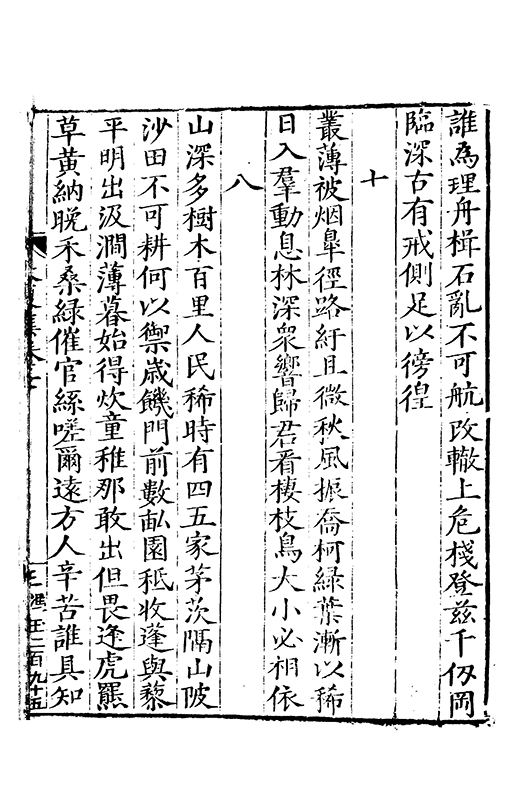 誰為理舟楫石亂不可航改轍上危棧登兹千仭岡
臨深古有戒側足以徬徨
十
叢薄被烟臯徑路紆且微秋風振喬柯緑葉漸以稀
日入羣動息林深衆響歸君看棲枝鳥大小必相依
八
山深多樹木百里人民稀時有四五家茅茨隔山陂
沙田不可耕何以禦歳饑門前數畝園秪收蓬與藜
平明出汲澗薄暮始得炊童稚那敢出但畏逢虎羆
草黄納晚禾桑緑催官絲嗟爾遠方人辛苦誰具知
王二百九十五